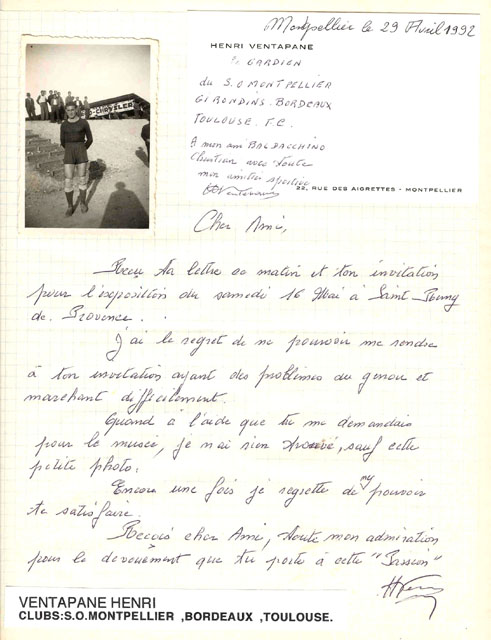 Montpellier le 29 Avril 1992
HENRI VENTAPANE
le GARDIEN
du S.O MONTPELLIER
GIRONDINS. BORDEAUX
TOULOUSE. F.C.
A mon ami BALDACCHINO
Christian avec toute
mon amitié sportive
HVentapane
22, RUE DES AIGRETTES - MONTPELLIER
CHRYSLER
Cher Ami,
Recu ta lettre ce matin et ton invitation
pour l'exposition du samedi 16 Mai à Saint-Remy
de. Provence.
J'ai le regret de ne pouvoir me rendre
à ton invitation ayant des problèmes du genou et
marchant difficilement.
Quand à l'aide que tu me demandais
pour le musée, je n'ai rien trouvé, sauf cette
petite photo.
Encore une fois je regrette de ny pouvoir
te satisfaire.
Reçois cher Ami, toute mon admiration
pour le devouément que tu porte à cette "Passion"
VENTAPANE HENRI
CLUBS:S.O.MONTPELLIER ,BORDEAUX ,TOULOUSE.